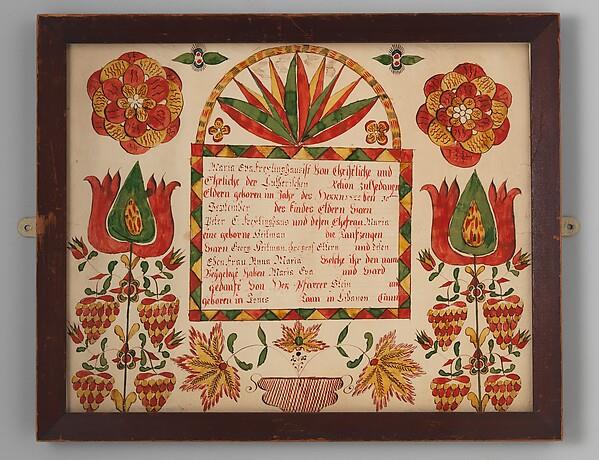 Maria Eva Freylinghaus ist Von Christliche und
Ehrliche der Lutherischen Relion zu
Eldern geboren im Jahr des HERRN den 30
September des Kindes Eldern Waren
Peter C. Freylinghaus und desen Ehefrau Maria
eine geborne Heilman die Taufzeugen
Waren Georg Heilman und desen
Ehefrau Anna Maria Welche ihr den nam
Beygelegt haben Maria Eva und Ward
getauft Von Her Pfarrer Stein
geboren in Taun in Libanon Caun